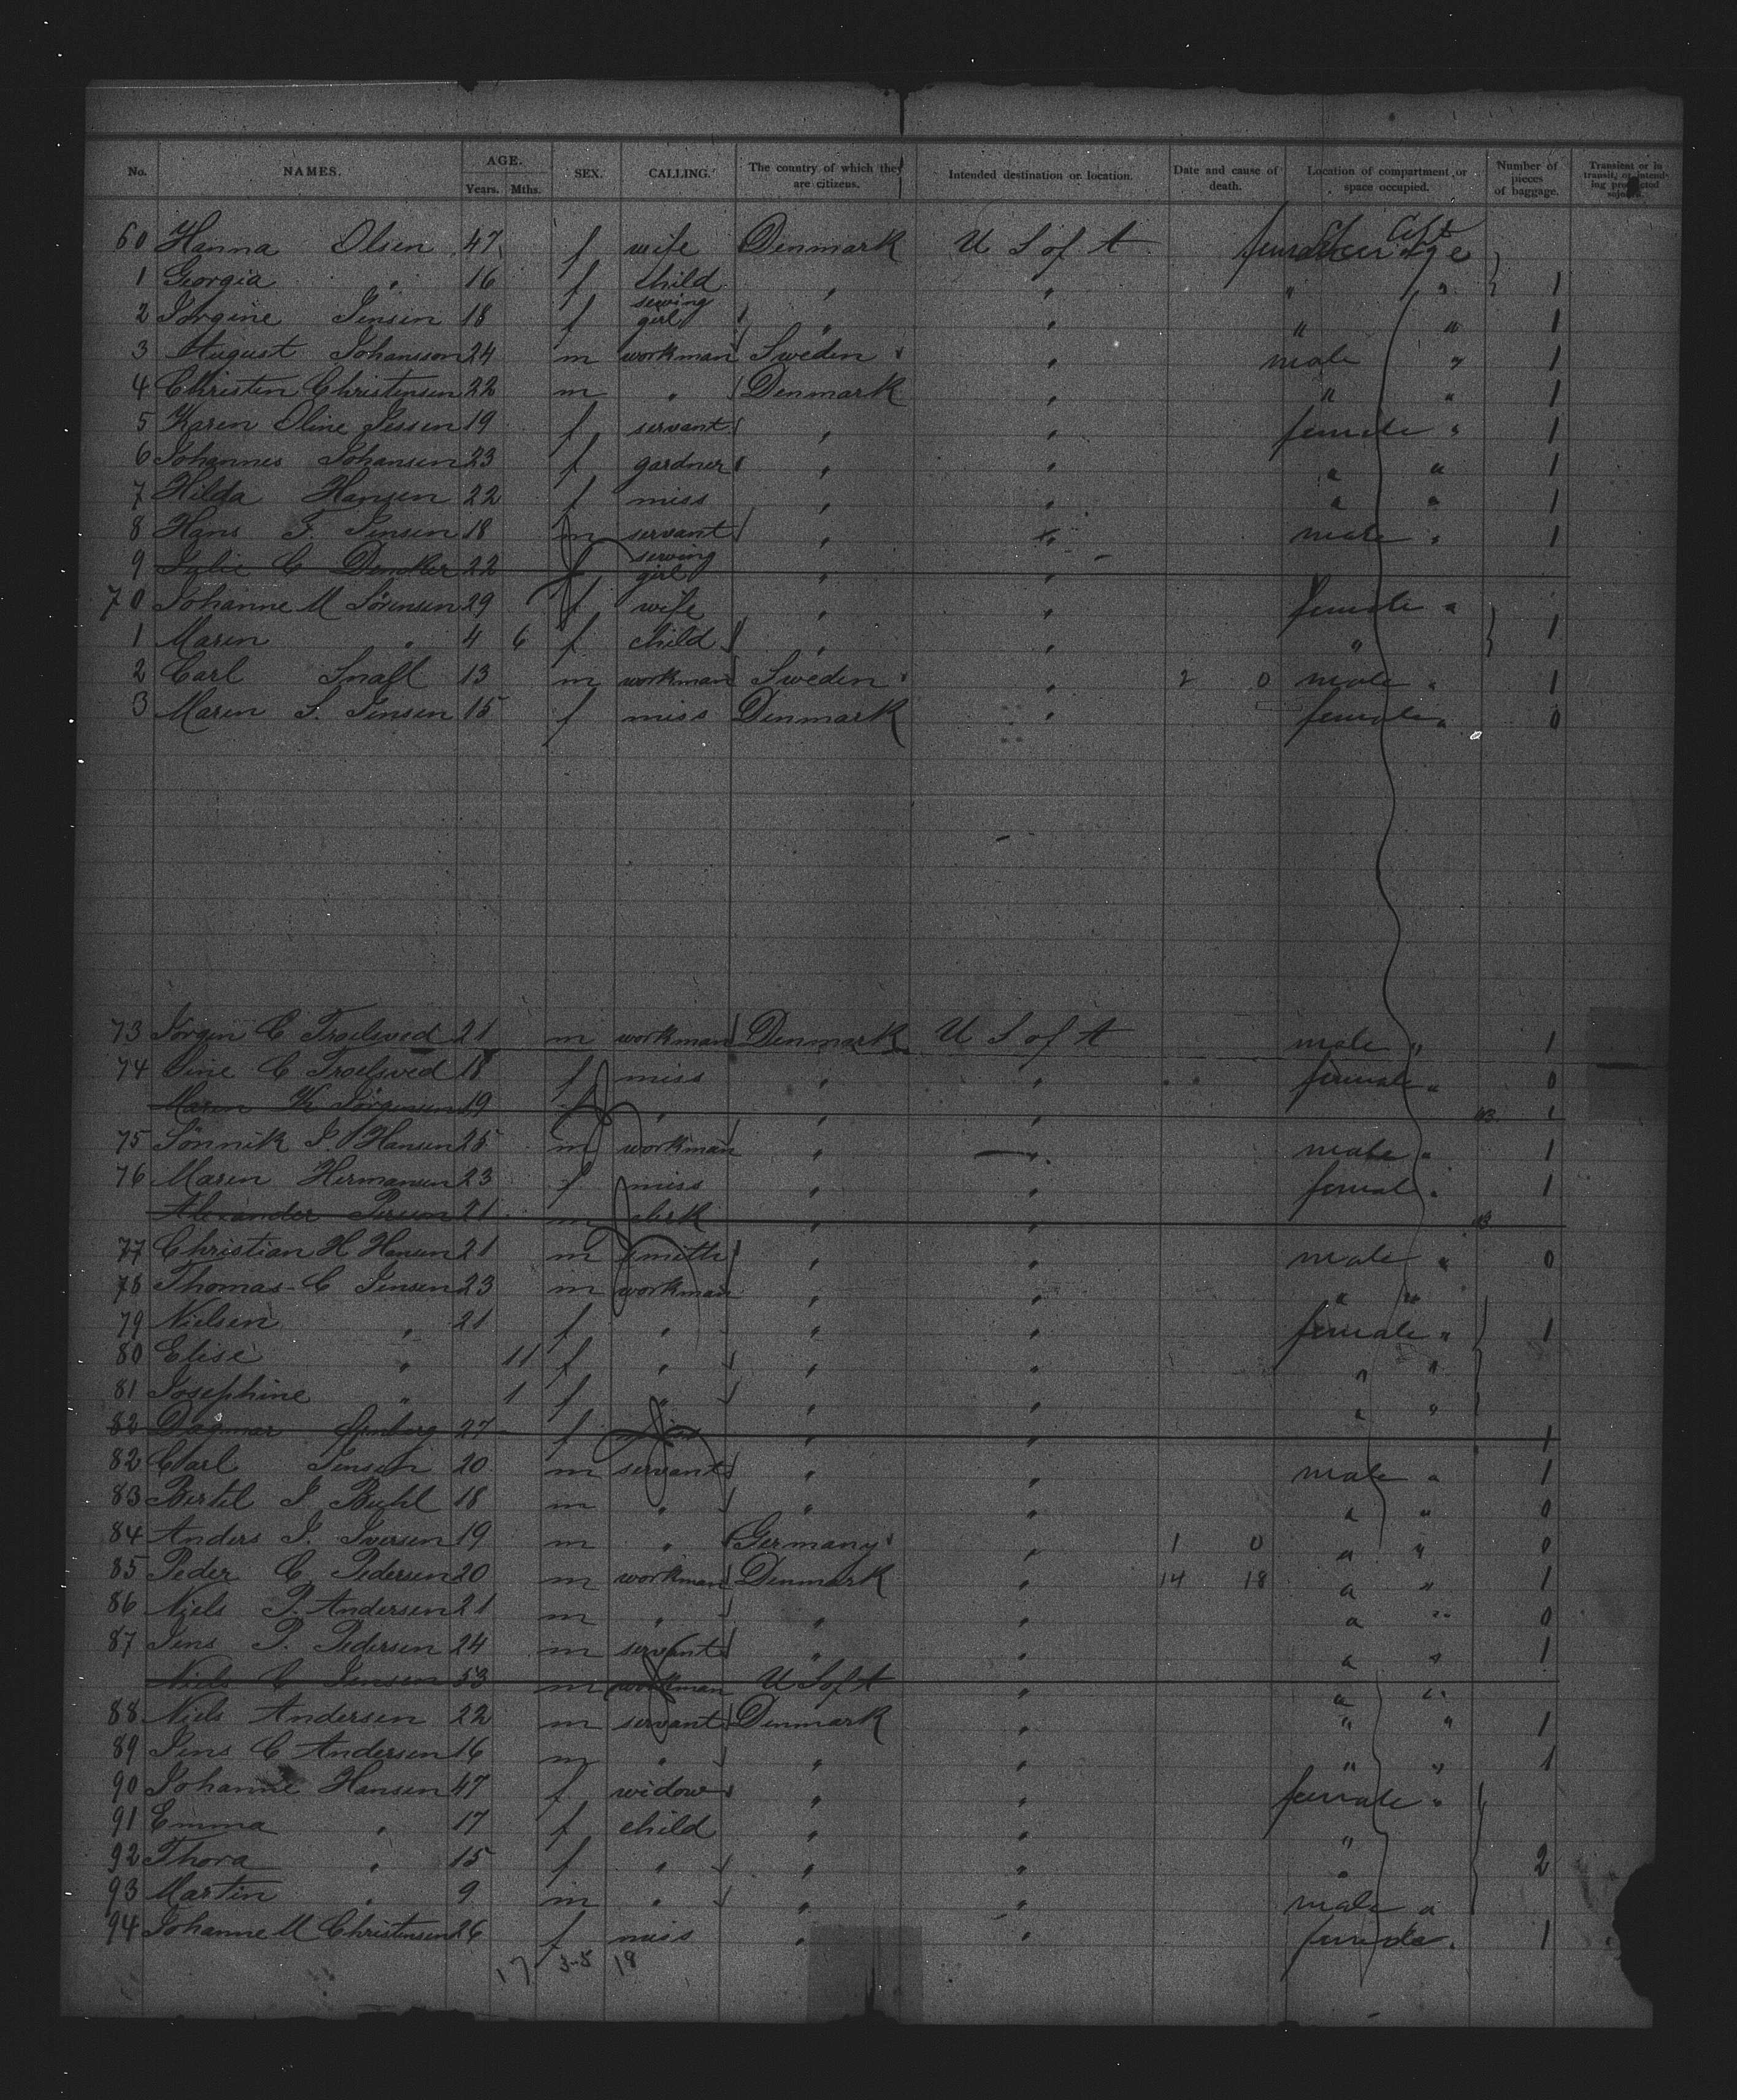 No. NAMES. AGE. Years. Mths. SEX. CALLING. The country of which they are citizens. Intended destination or location. Date and cause of death. Location of compartment or space occupied. Number of pieces of baggage. Transient or in transit, or intending protracted sojourn.
60 Hanna Olsen 47 f wife Denmark U S of A female Steerage Aft
1 Georgia " 16 f child " " " " 1
2 Jorgine Jensen 18 f sewing girl " " " " 1
3 August Johansson 24 m workman Sweden " male " 1
4 Christen Christensen 22 m " Denmark " " " 1
5 Karen Oline Jessen 19 f servant " " female " 1
6 Johannes Johansen 23 f gardner " " " " 1
7 Hilda Hansen 22 f miss " " " " 1
8 Hans F. Jensen 18 m servant " " male " 1
9 Julie C Dencker 22 f serving girl " "
70 Johanne M Sörensen 29 f wife " " female "
1 Maren " 4 6 f child " " " 1
2 Carl Snall 13 m workman Sweden " 2 0 male " 1
3 Maren S. Jensen 15 f miss Denmark " female " 0
73 Jörgen C Troelsved 21 m workman Denmark U S of A male " 1
74 Sine C Troelsved 18 f miss " " female " 0
Maren K Jörgensen 19 f " " " 1
75 Sönnik J. Hansen 25 m workman " " male " 1
76 Maren Hermansen 23 f miss " " female " 1
Alexander 21 m clerk " "
77 Christian H Hansen 21 m smith " " male " 0
78 Thomas C Jensen 23 m workman " " " "
79 Nielsen " 21 f " " " female " 1
80 Elise " 11 f " " " " "
81 Josephine " 1 f " " " " "
82 Dagmar 27 f " " 1
82 Carl Jensen 20 m servant " " male " 1
83 Bertel J Buhl 18 m " " " " " 0
84 Anders J. Iversen 19 m " Germany " 1 0 " " 0
85 Peder C Pedersen 20 m workman Denmark " 14 18 " " 1
86 Niels P. Andersen 21 m " " " " " 0
87 Jens P. Pedersen 24 m servant " " " " 1
Niels C Jensen 53 m workman U S of A " " "
88 Niels Andersen 22 m servant Denmark " " " 1
89 Jens C Andersen 16 m " " " " " 1
90 Johanne Hansen 47 f widow " " female "
91 Emma " 17 f child " " "
92 Thora " 15 f " " " " 2
93 Martin " 9 m " " " male "
94 Johanne M Christensen 26 f miss " " female " 1
17 35 18